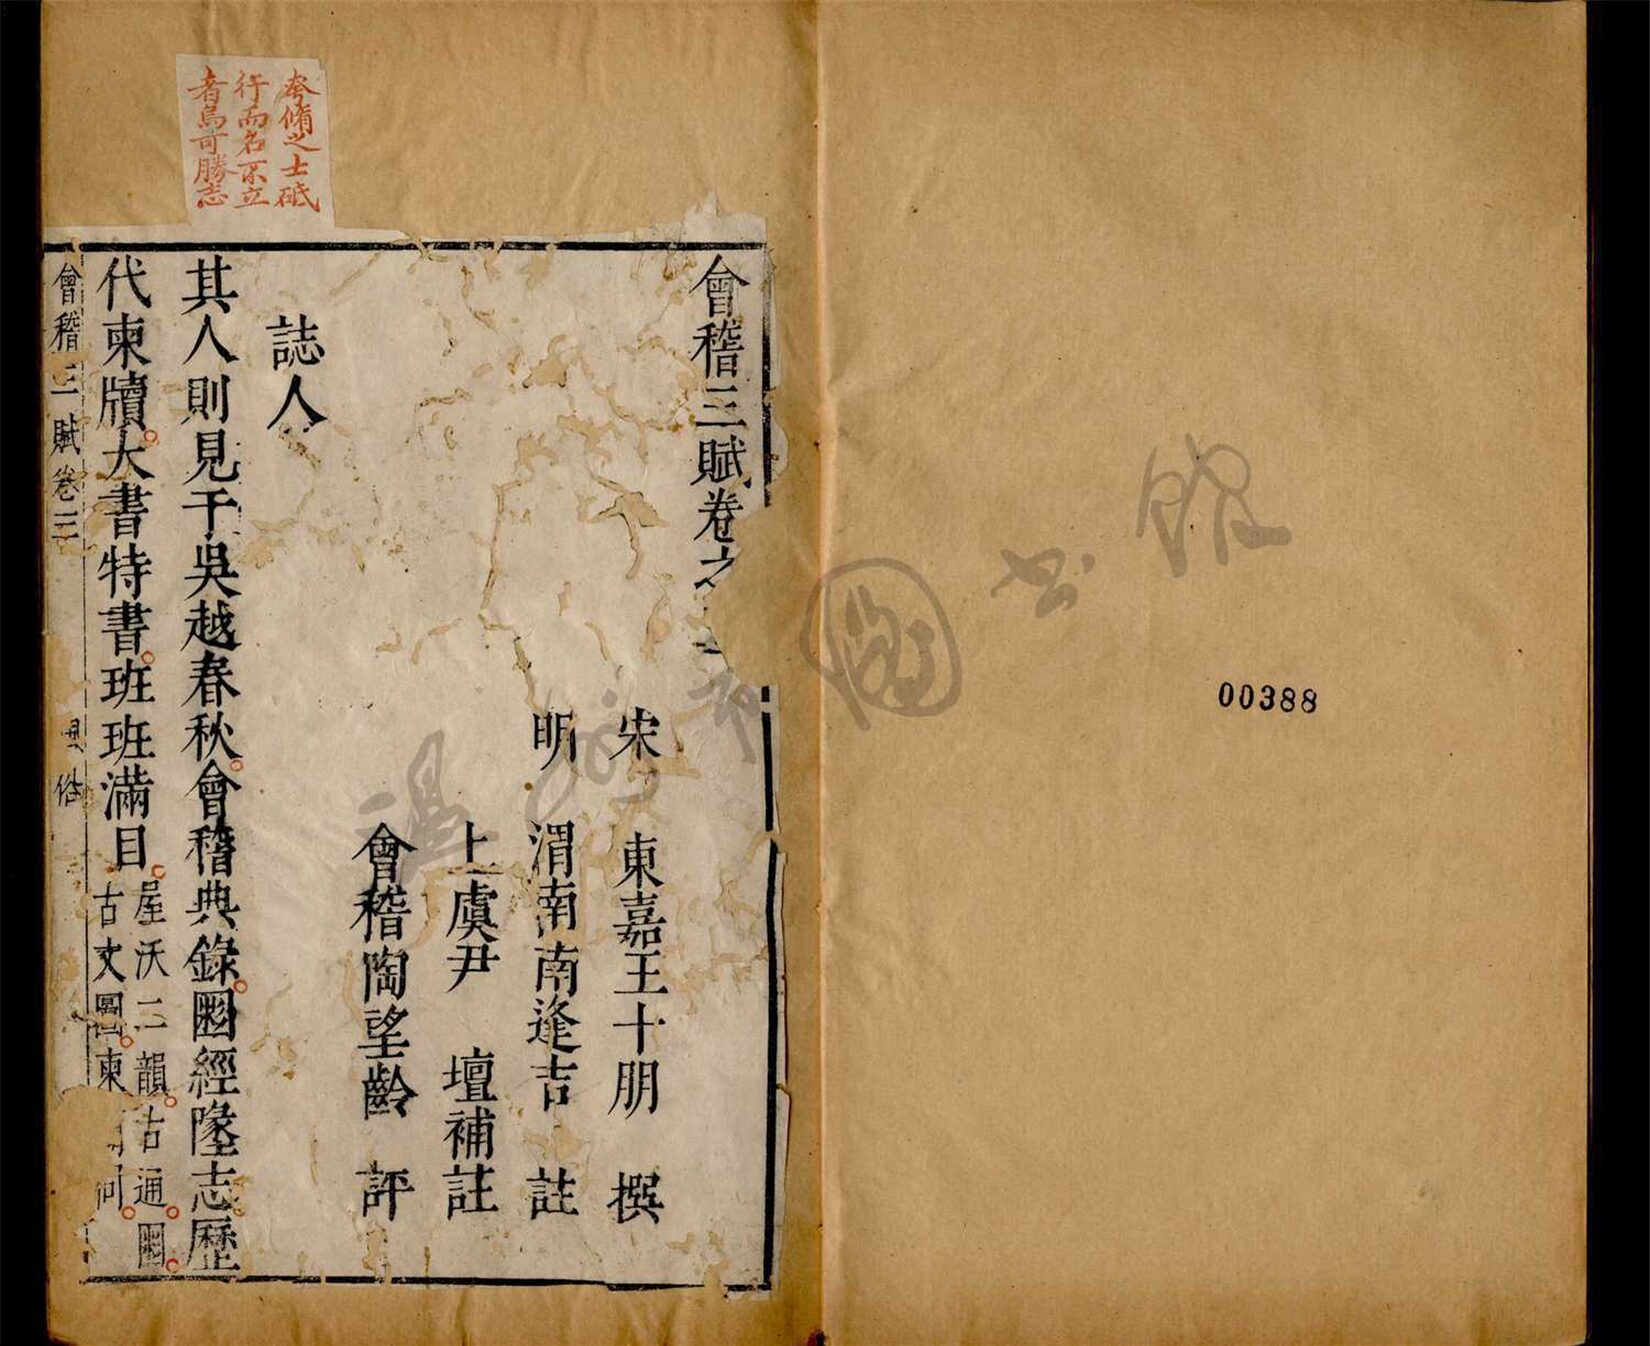 夸脩之士砥
行而名不立
者烏可勝志
會稽三賦卷之
宋 東嘉王十朋 撰
明 渭南南逢吉 註
上虞尹 壇補註
會稽陶望齡 評
誌人
其人則見于吳越春秋會稽典錄圖經隆志歷
代柬牘大書特書班班滿目屋沃二韻古通圖
古文圖柬
會稽三賦卷三
00388